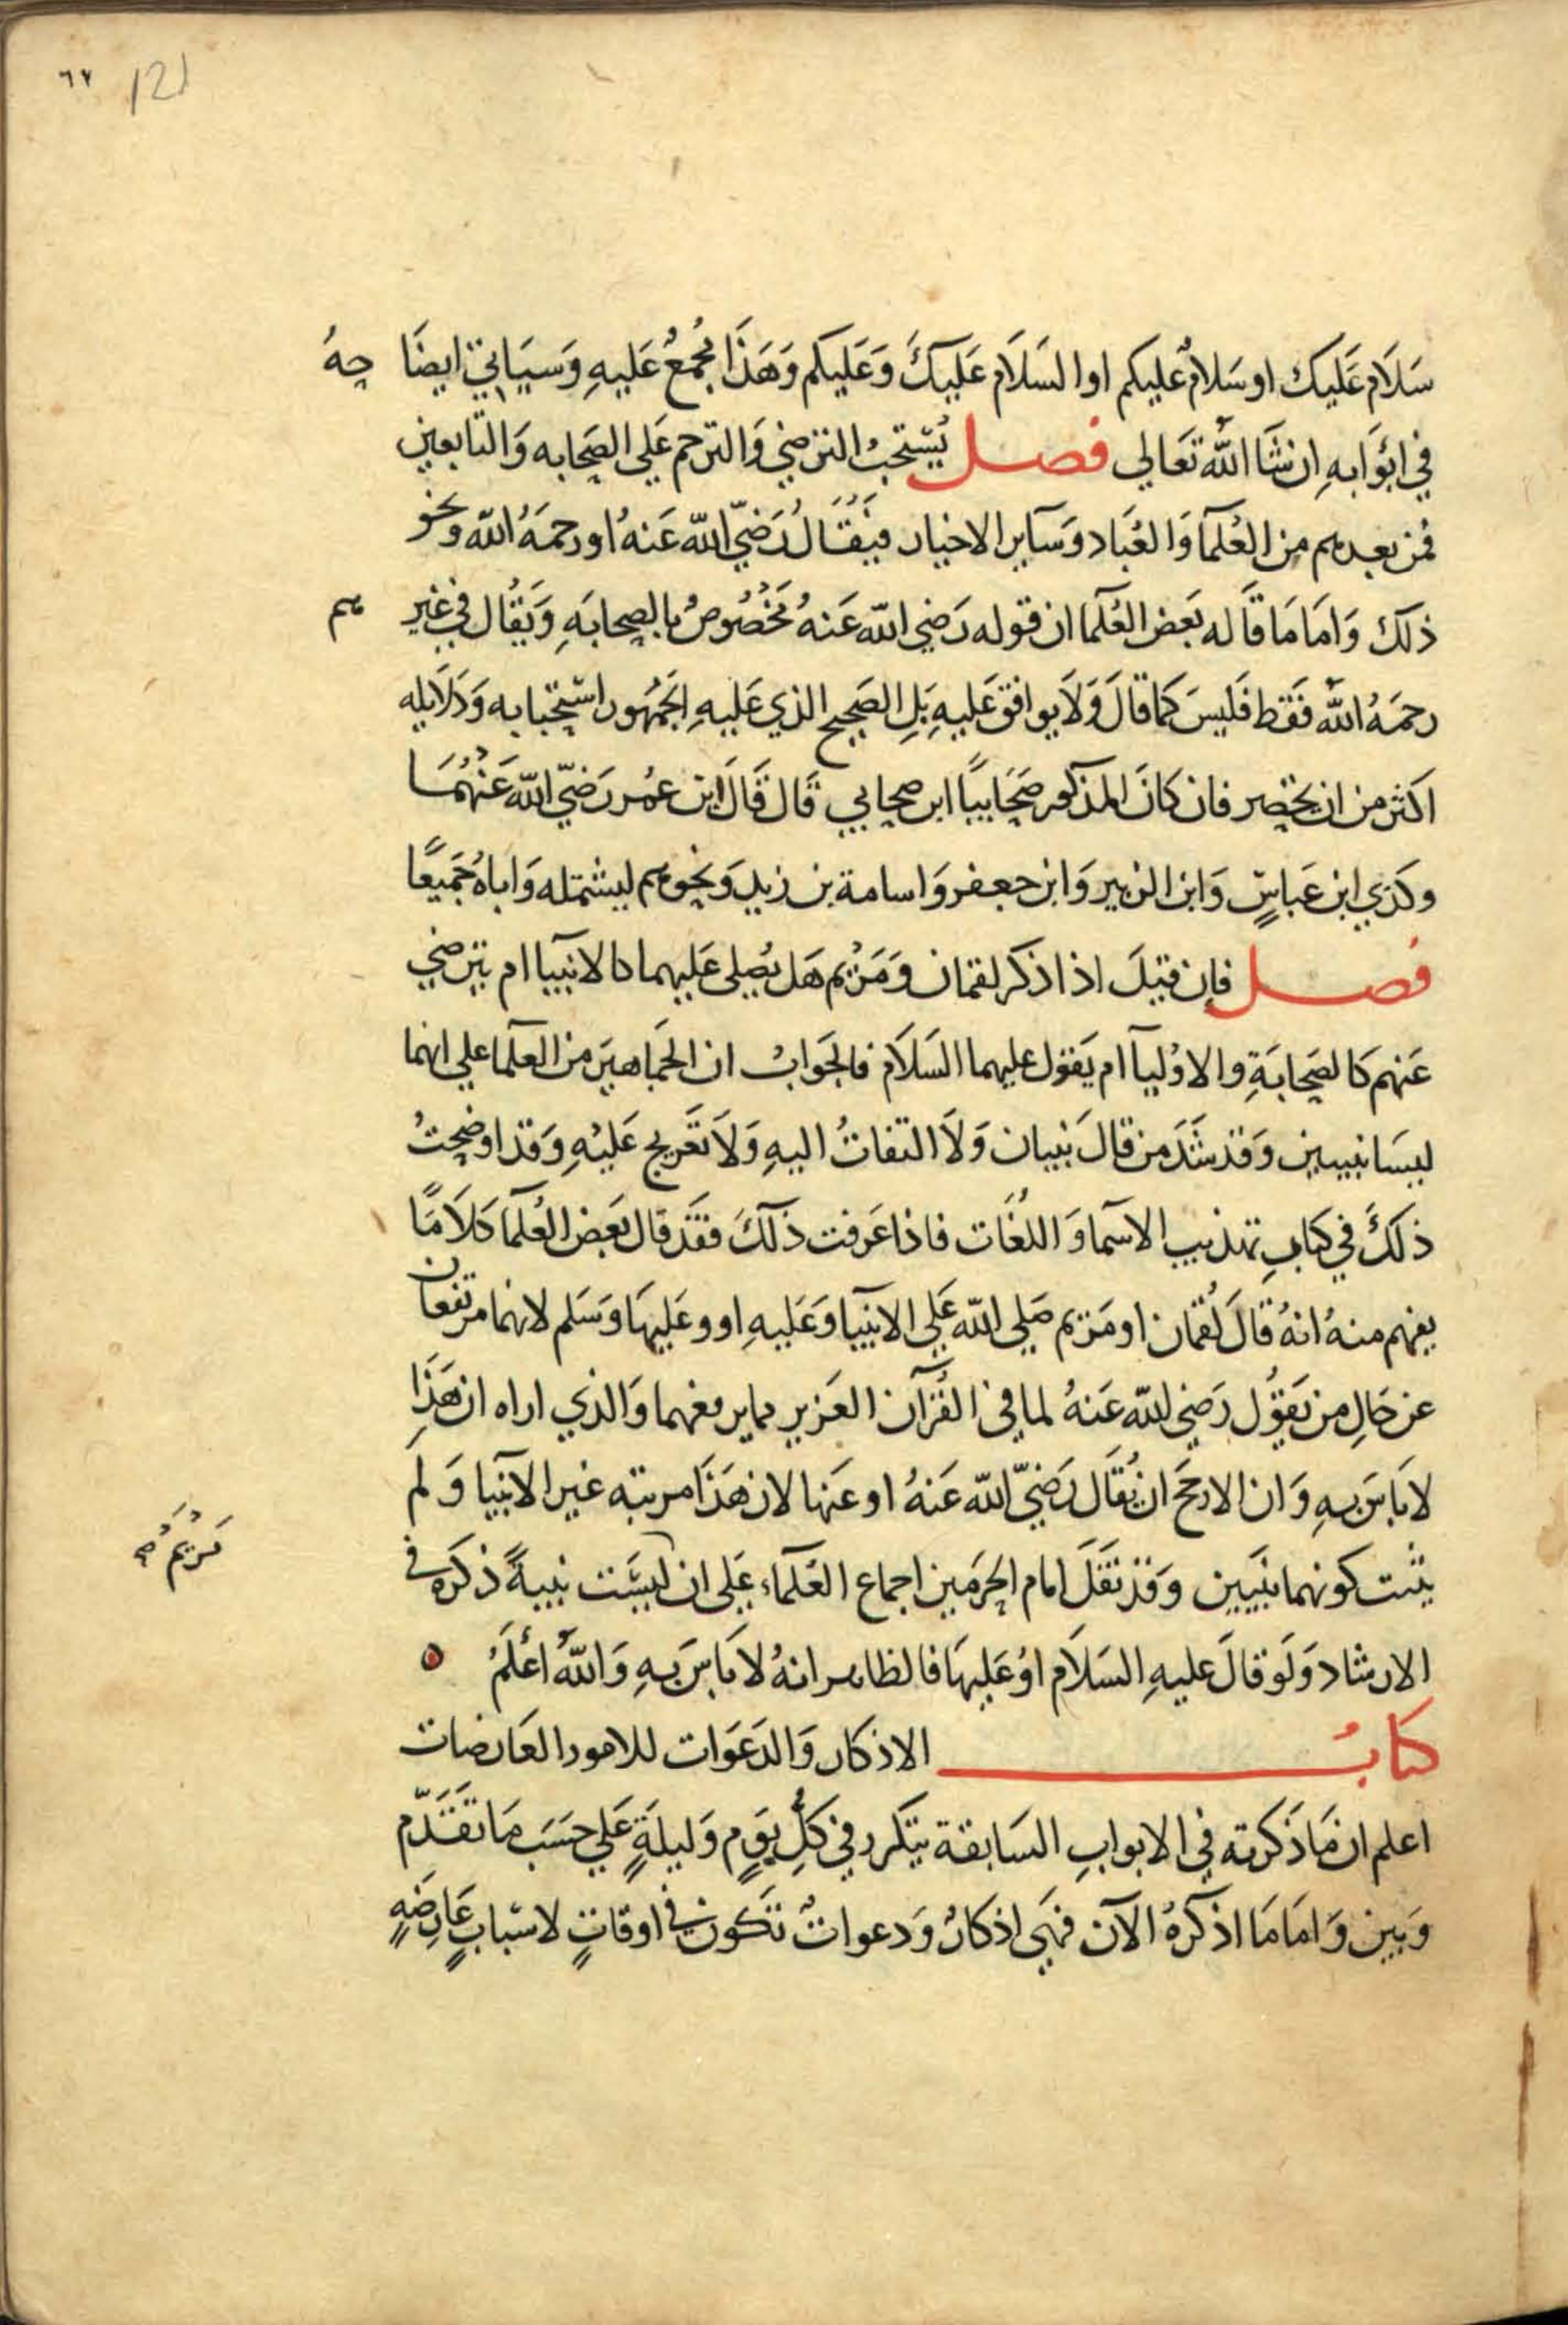 ٦٧ 121
سَلَام عَلَيك او سَلامٌ عَليكم او السَلَام عَلَيكَ وَعَليكم وَهَذَا مُجمَعُ عَلَيهِ وَسيَاتي ايضَاحِهُ
في ابوَابهِ ان شَا اللّٰه تعَالي فصل يُستحَبُ الترَضي وَالترحم عَلي الصَحَابه وَالتابعين
فمن بعدهم من العُلمآ وَالعُبَاد وَسآير الاخيار فيُقَالُ رَضيَ اللّٰه عَنهُ او رحمَهُ اللّٰه ونحو
ذلكَ وَامَا مَا قَاله بَعَض العُلمآ ان قوله رَضي اللّٰه عَنهُ مَخُصُوصُ بالصحابَهِ وَيقُال في غيرهم
رحمَهُ اللّٰه فقط فَليسَ كَما قالَ وَلَا يوافق عَليهِ بَلِ الصَحيح الذي عَليهِ الجمُهور استحبابه وَدَلَايله
اكثر من ان تحصر فان كانَ المذكور صَحَابيًا ابن صحابي قال قَالَ ابن عُمر رَضيّ اللّٰه عَنهُمَا
وكذي ابن عَباسٍ وَابن الزبير وَابن جعفر وَاسامة بن زيد وَنحوهم ليشتمله وَاباهُ جَميعًا
فصل فإن قيلَ اذا ذكر لقمان وَمَرْيم هَل يُصلى عَليهما كالانبيا ام يترضي
عَنهم كالصَحابَةِ والاوْلياۤ ام يَقول عليهما السَلَام فالجَوابُ ان الجمَاهيرَ من العلما علي انهما
ليسَا نبيين وَقد شَذَ من قالَ نبيان وَلَا التفاتُ اليهِ وَلَا تعَريج عَليْهِ وَقد اوضحتُ
ذلكَ في كتابِ تهذيب الاسمآ وَاللغُات فاذا عَرفت ذلكَ فقَد قال بعَض العُلمآ كلَامًا
يفهم منهُ انهُ قالَ لُقمان او مَريم صَلي اللّٰه عَلي الانبيا وَعَليهِ او وعَليهَا وَسَلم لانهما مرتفعان
عن حَالِ من يَقوُل رَضي اللّٰه عَنهُ لما في القُرآن العَزيز مما يرفعهما وَالذي اراه ان هَذَا
لا بَاسَ بهِ وَان الارجَح ان يُقَال رَضيّ اللّٰه عَنهُ او عَنها لان هَذَا مرتبه غير الانبيا وَلم
يثبت كونهما نبَيين وَقد نقَلَ امام الحرمَين اجماع العُلماء عَلى ان ليسَت نبيةً ذكَره في
مَرْيَمُ صح
الارشاد وَلَو قالَ عليهِ السَلَام اوْ عَليهَا فالظاهر انهُ لا بَاسَ بهِ وَاللّٰه أعْلَمُ
كتابُ الاذكار وَالدعَوَات للامور العَارضات
اعلم ان مَا ذَكرته في الابوابِ السَابقة يتكرر في كلِ يَومٍ وَليلَةٍ عَلي حسَبَ مَا تقَدّم
وَبين وَامَا مَا اذكرهُ الآن فهَي اذكارُ وَدعواتُ تَكون في اوقاتٍ لاسبابٍ عَارِضَهٍ